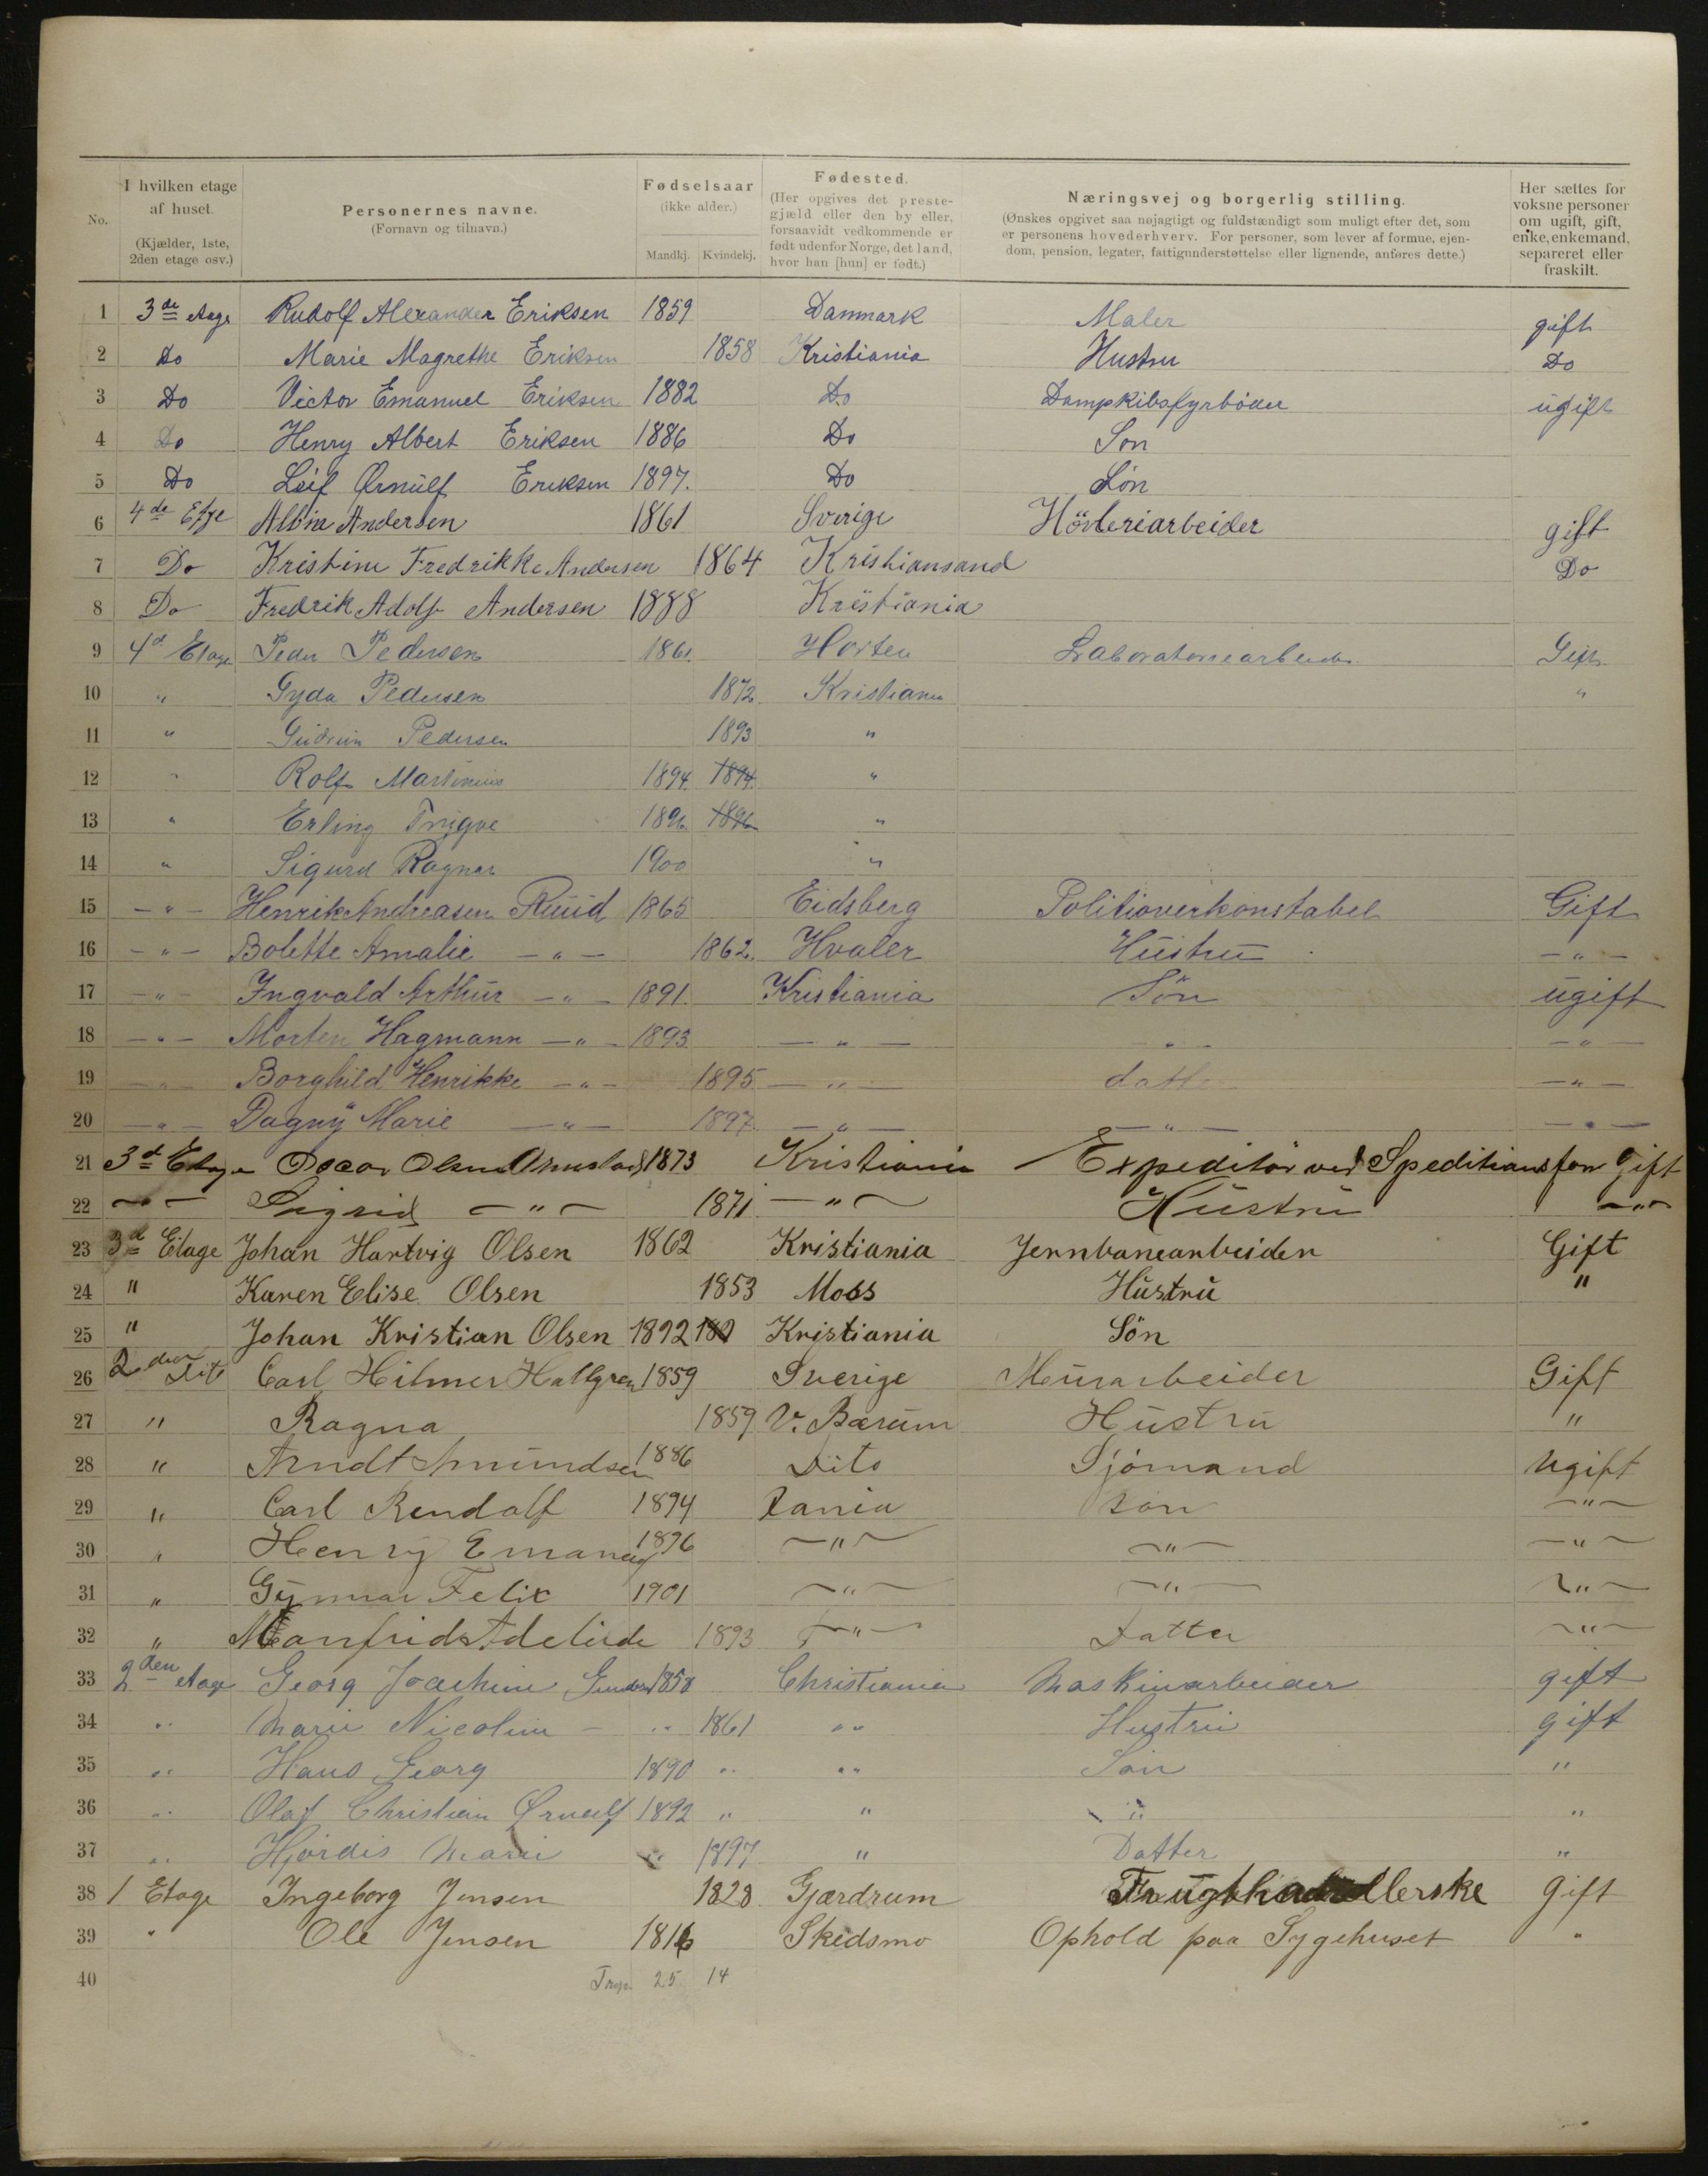 No. I hvilken etage af huset. (Kjælder, 1ste, 2den etage osv.) Personernes navne. (Fornavn og tilnavn.) Fødselsaar (ikke alder.) Mandkj. Kvindekj. Fødested. (Her opgives det prestegjæld eller den by eller, forsaavidt vedkommende er født udenfor Norge, det land, hvor han [hun] er født.) Næringsvej og borgerlig stilling. (Ønskes opgivet saa nøjagtigt og fuldstændigt som muligt efter det, som er personens hovederhverv. For personer, som lever af formue, ejendom, pension, legater, fattigunderstøttelse eller lignende, anføres dette.) Her sættes for voksne personer om ugift, gift, enke, enkemand, separeret eller fraskilt.
1 3de etage Rudolf Alexander Eriksen 1859 Danmark Maler gift
2 Do Marie Magrethe Eriksen 1858 Kristiania Hustru Do
3 Do Victor Emanuel Eriksen 1882 Do Dampkibsfyrbøder ugift
4 Do Henry Albert Eriksen 1886 Do Søn
5 Do Leif Ørnulf Eriksen 1897. Do Søn
6 4de Etge Albin Andersen 1861 Sverige Høvleriarbeider gift
7 Do Kristine Fredrikke Andersen 1864 Kristiansand Do
8 Do Fredrik Adolf Andersen 1888 Kristiania
9 4d Etage Peder Pedersen 1861. Horten Laboratoriearbeider Gift
10 " Gyda Pedersen 1872. Kristiania "
11 " Gudrun Pedersen 1893 "
12 " Rolf Martinius 1894. 1894. "
13 " Erling Trygve 1896 1896 "
14 " Sigurd Ragnar 1900 "
15 — " — Henrik Andreasen Ruud 1865 Eidsberg Politioverkonstabel Gift
16 — " — Bolette Amalie — " — 1862. Hvaler Hustru — " —
17 — " — Ingvald Arthur — " — 1891. Kristiania Søn ugift
18 — " — Morten Hagmann — " — 1893 — " — — " — — " —
19 — " — Borghild Henrikke — " — 1895 — " — datter — " —
20 — " — Dagny Marie — " — 1897 — " — — " — — " —
21 3d Etage Oscar Olsen 1873 Kristiania Expeditør ved Speditionsfor Gift
22 — " — Sigrid — " — 1871 — " — Hustru — " —
23 3d Etage Johan Hartvig Olsen 1862 Kristiania Jernbanearbeider Gift
24 " Karen Elise Olsen 1853 Moss Hustru "
25 " Johan Kristian Olsen 1892 Kristiania Søn
26 2den Dito Carl Hilmer Hallgren 1859 Sverige Murarbeider Gift
27 " Ragna 1859 V. Bærum Hustru "
28 " Arndt Amundsen 1886 Dito Sjømand Ugift
29 " Carl Rendolf 1894 Xania Søn — " —
30 " Henry Emanuel 1896 — " — — " — — " —
31 " Gunnar Felix 1901 — " — — " — — " —
32 " Manfrid Adelide 1893 — " — Datter — " —
33 2den etage Georg Joachim 1858 Christiania Maskinarbeider gift
34 " Marie Nicoline — " 1861 " Hustru gift
35 " Hans Georg 1890 " " Søn "
36 " Olaf Christian Ørnulf 1892 " " " "
37 " Hjørdis Marie " 1897 " Datter "
38 1 Etage Ingeborg Jensen 1828 Gjærdrum Frugthandlerske Gift
39 " Ole Jensen 1816 Skedsmo Ophold paa Sygehuset "
40 25 14